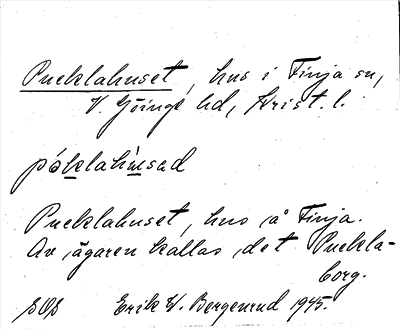 Pucklahuset, hus i Finja sn,
V. Göinge hd, Krist. l.
pòklahùsəd
Pucklahuset, hus å Finja.
Av ägaren kallas det Puckla-
borg.
SOS Erik W. Bergenrud 1945.